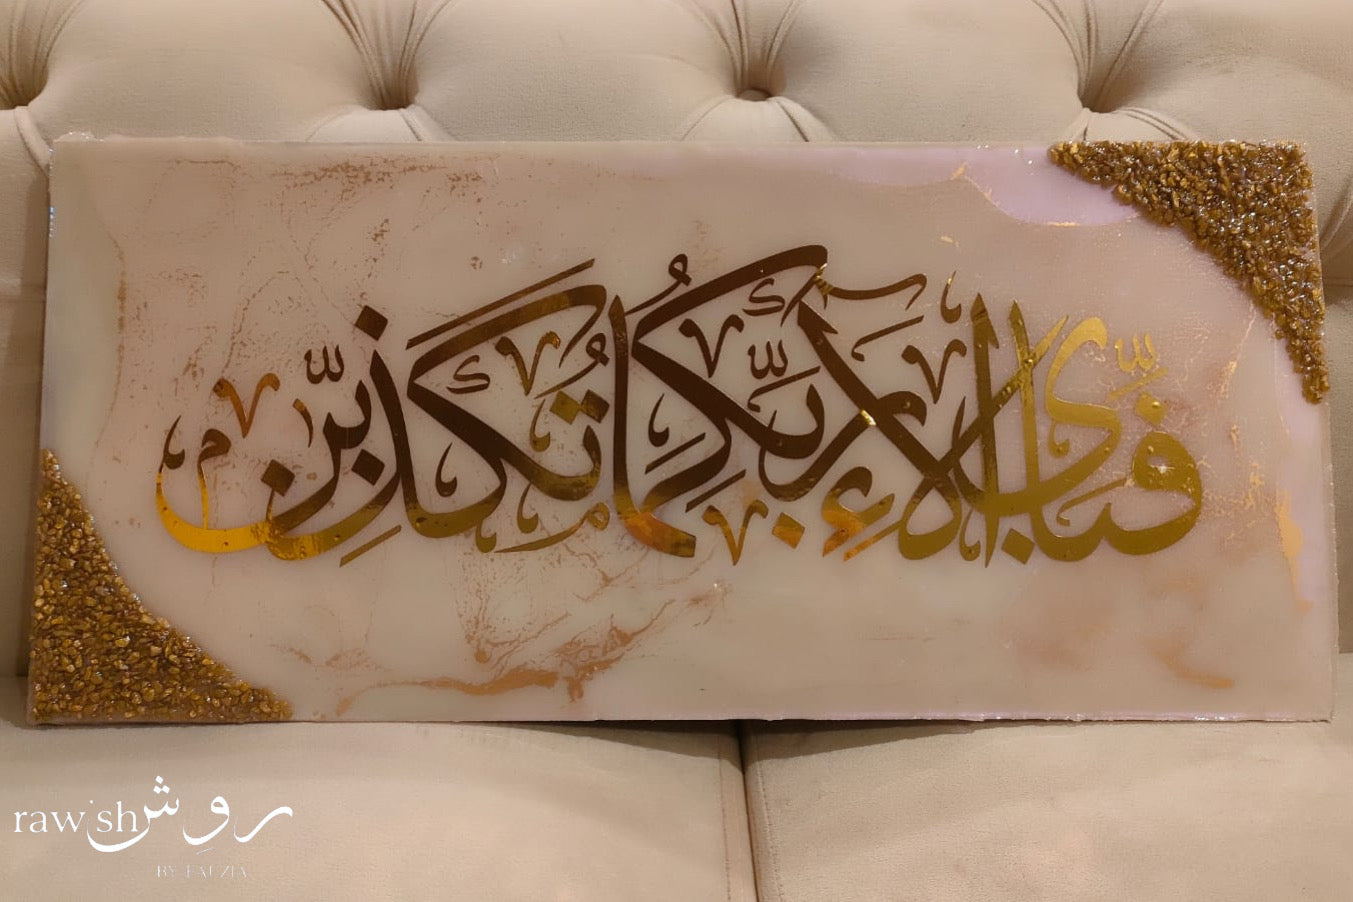 فَبِأَيِّ آلَاءِ رَبِّكُمَا تُكَذِّبٰنِ
rawish روِش
BY FAUZIA